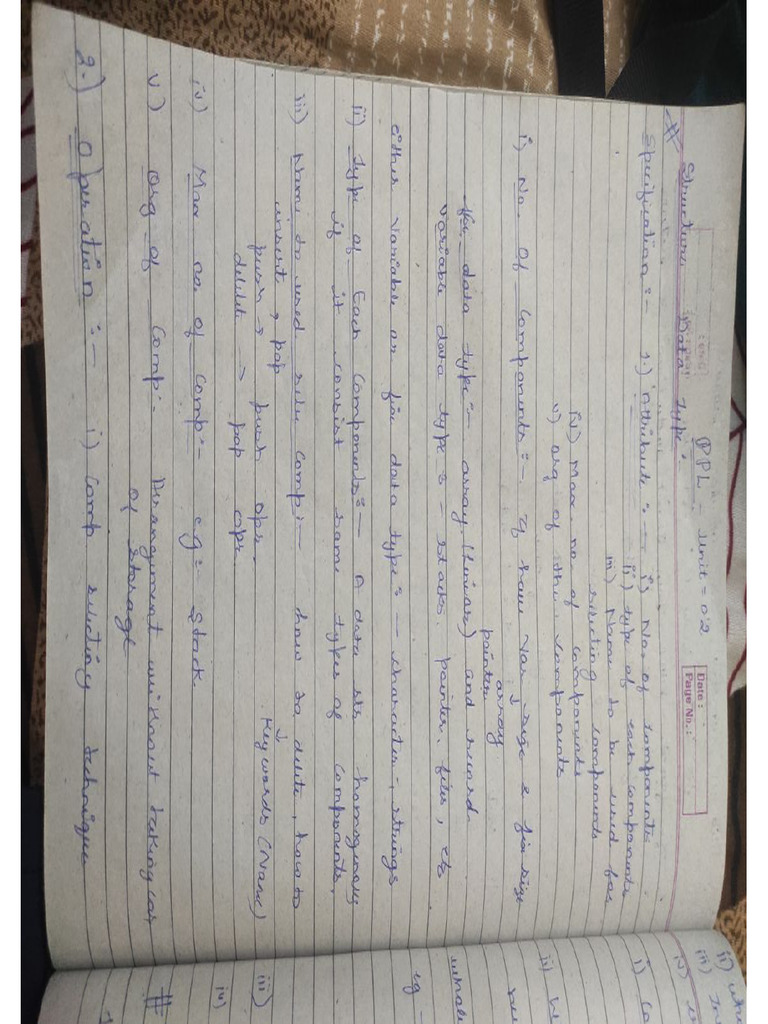 PPL - Unit = 02
Date :
Page No. :
# Structure Data Type :-
Specification :- 1.) Attribute :- i) No. of components
ii) type of each components
iii) Name to be used for
selecting components
iv) Max. no. of components
v) org of the components
i) No. of Components :- If have Var size & fix size
array
pointer
fix data type :- array (linear) and record
Variable data type :- stacks, pointer, files, etc
either variable or fix data type :- character, strings
ii) Type of Each Components :- A data str homogenous
if it consist same types of components,
iii) Name to used sele comp :- how to delete, how to
insert → pop
Keywords (Name)
push → push opr.
delete → pop opr.
iv) Max no of comp :- eg :- Stack
v) Org of Comp :- Arrangement without taking
of storage
2.) Operation :- i) Comp selecting technique
ii)
iii)
iv)
i)
ii)
eg -
iii)
iv)
#